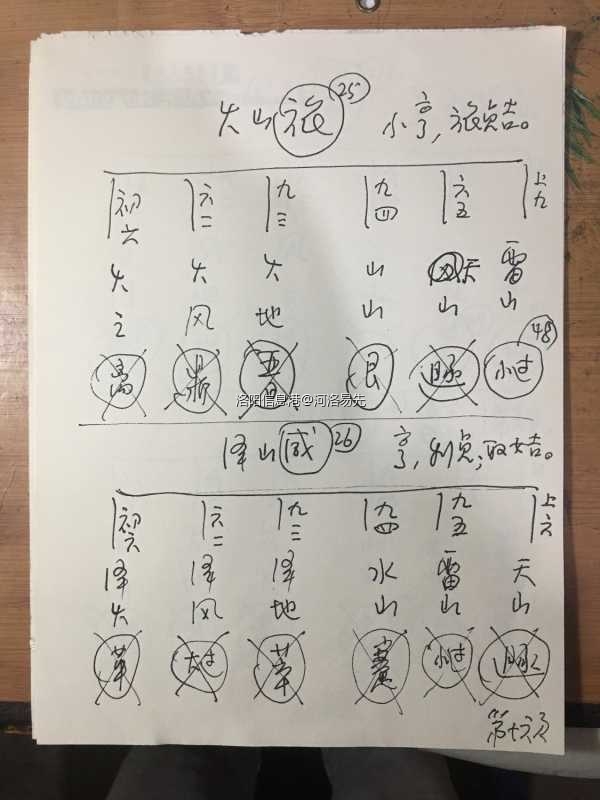 火山旅 25 小亨,旅贞吉。
初六 六二 九三 九四 六五 上九
火 火 火 山 天 雷
之 风 地 山 山 山
离 鼎 晋 艮 遁 小过 48
洛阳信息港@河洛易先
泽山咸 26 亨,利贞;取女吉。
初六 六二 九三 九四 九五 上六
泽 泽 泽 水 雷 天
火 风 地 山 山 山
革 大过 萃 蹇 小过 遁
第十六页